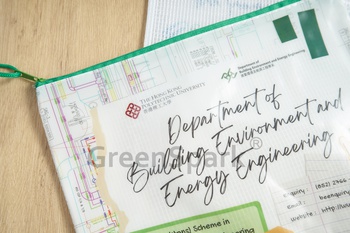 THE HONG KONG
POLYTECHNIC UNIVERSITY
香港理工大學
Department of
Building Environment and Energy Engineering
Department of
Building Environment and
Energy Engineering
GreenSpark®
Scheme in
enquiry
(852) 2766
Website